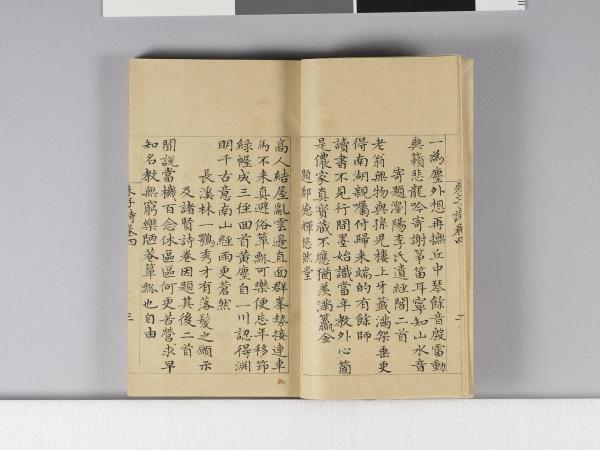 一為塵外想再撫丘中琴餘音殷雷動
爽籟悲龍吟寄謝箏笛耳寧知山水音
寄題瀏陽李氏遺經閣二首
老翁無物與孫兒樓上牙籤滿架垂更
得南湖親囑付歸来端的有餘師
讀書不見行間墨始識當年教外心箇
是儂家真寳藏不應猶羨滿籯金
題鄭德輝悠然堂
高人結屋亂雲邊直面群峯勢接連車
馬不来真避俗簞瓢可樂便忘年移筇
綠幄成三徑回首黃塵自一川認得淵
明千古意南山經雨更蒼然
長溪林一鶚秀才有落髪之願示
及諸賢詩卷因題其後二首
聞說當機百念休區區何更苦營求早
知名教無窮樂陋巷簞瓢也自由
朱子詩卷四
三